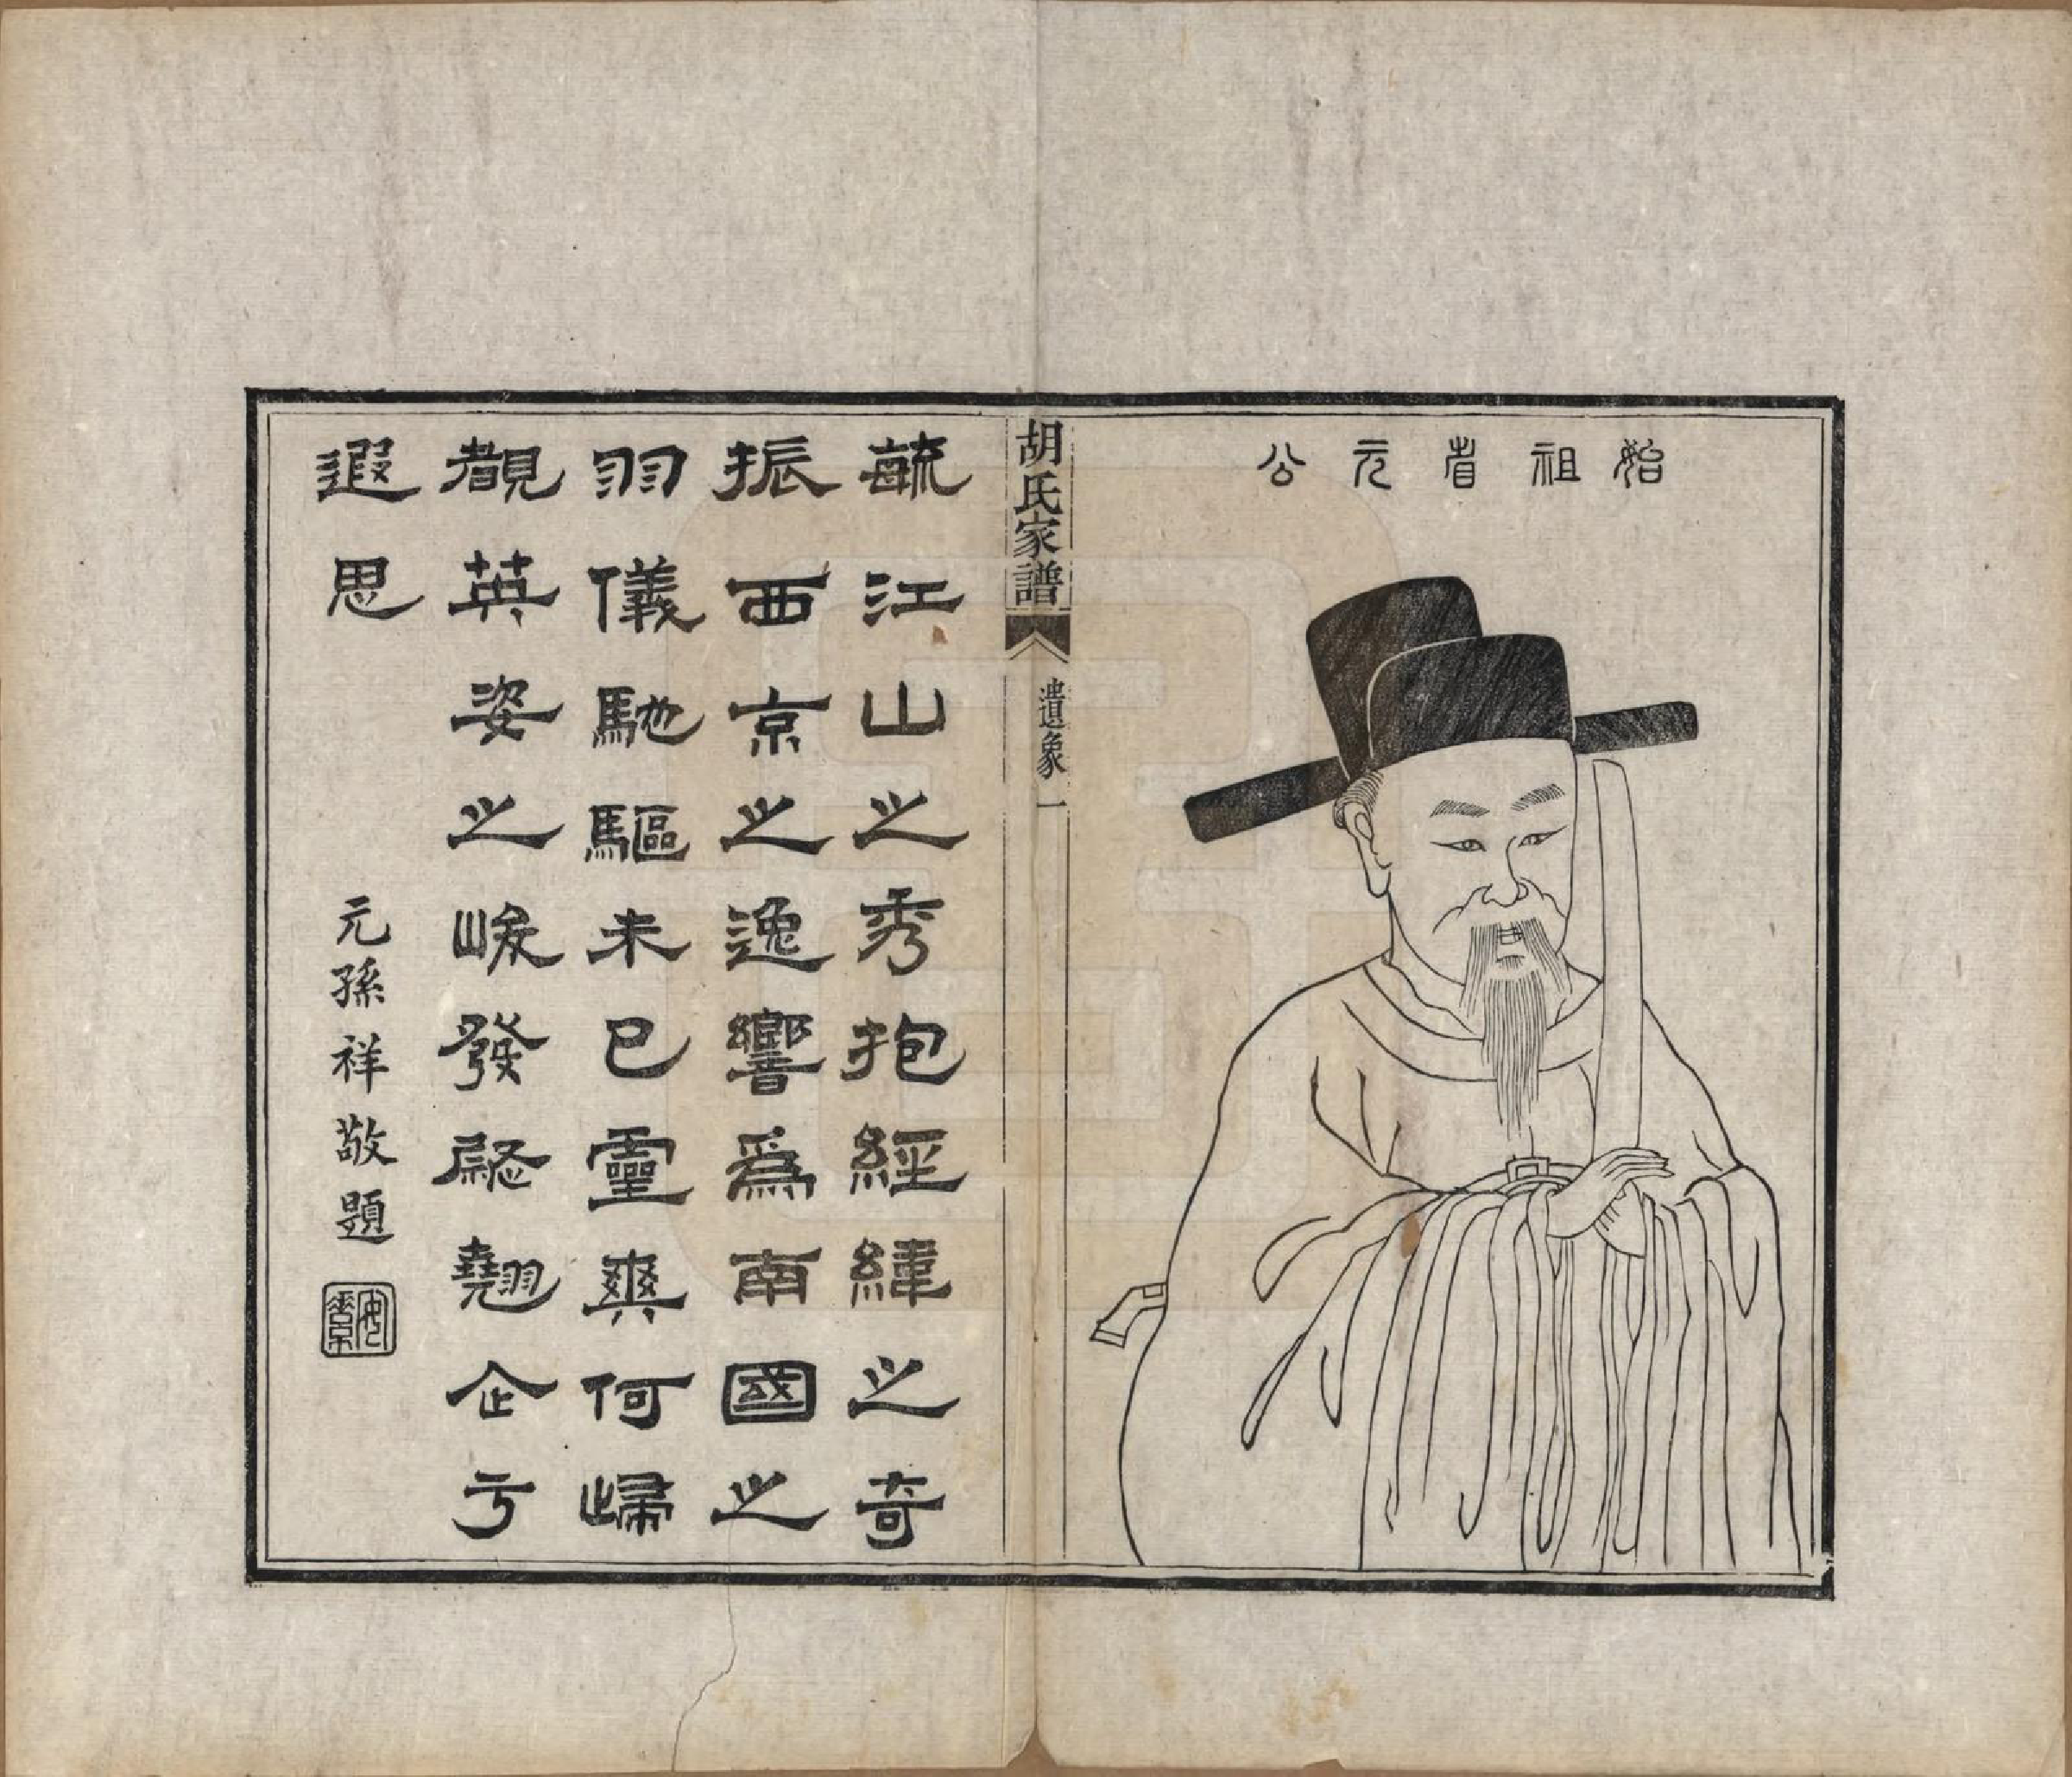 始祖省元公
胡氏家譜
遺象一
毓江山之秀抱經緯之奇
振西京之逸響爲南國之
羽儀馳驅未已靈爽何歸
覩英姿之峻發慰翹企亏
遐思
元孫祥敬題